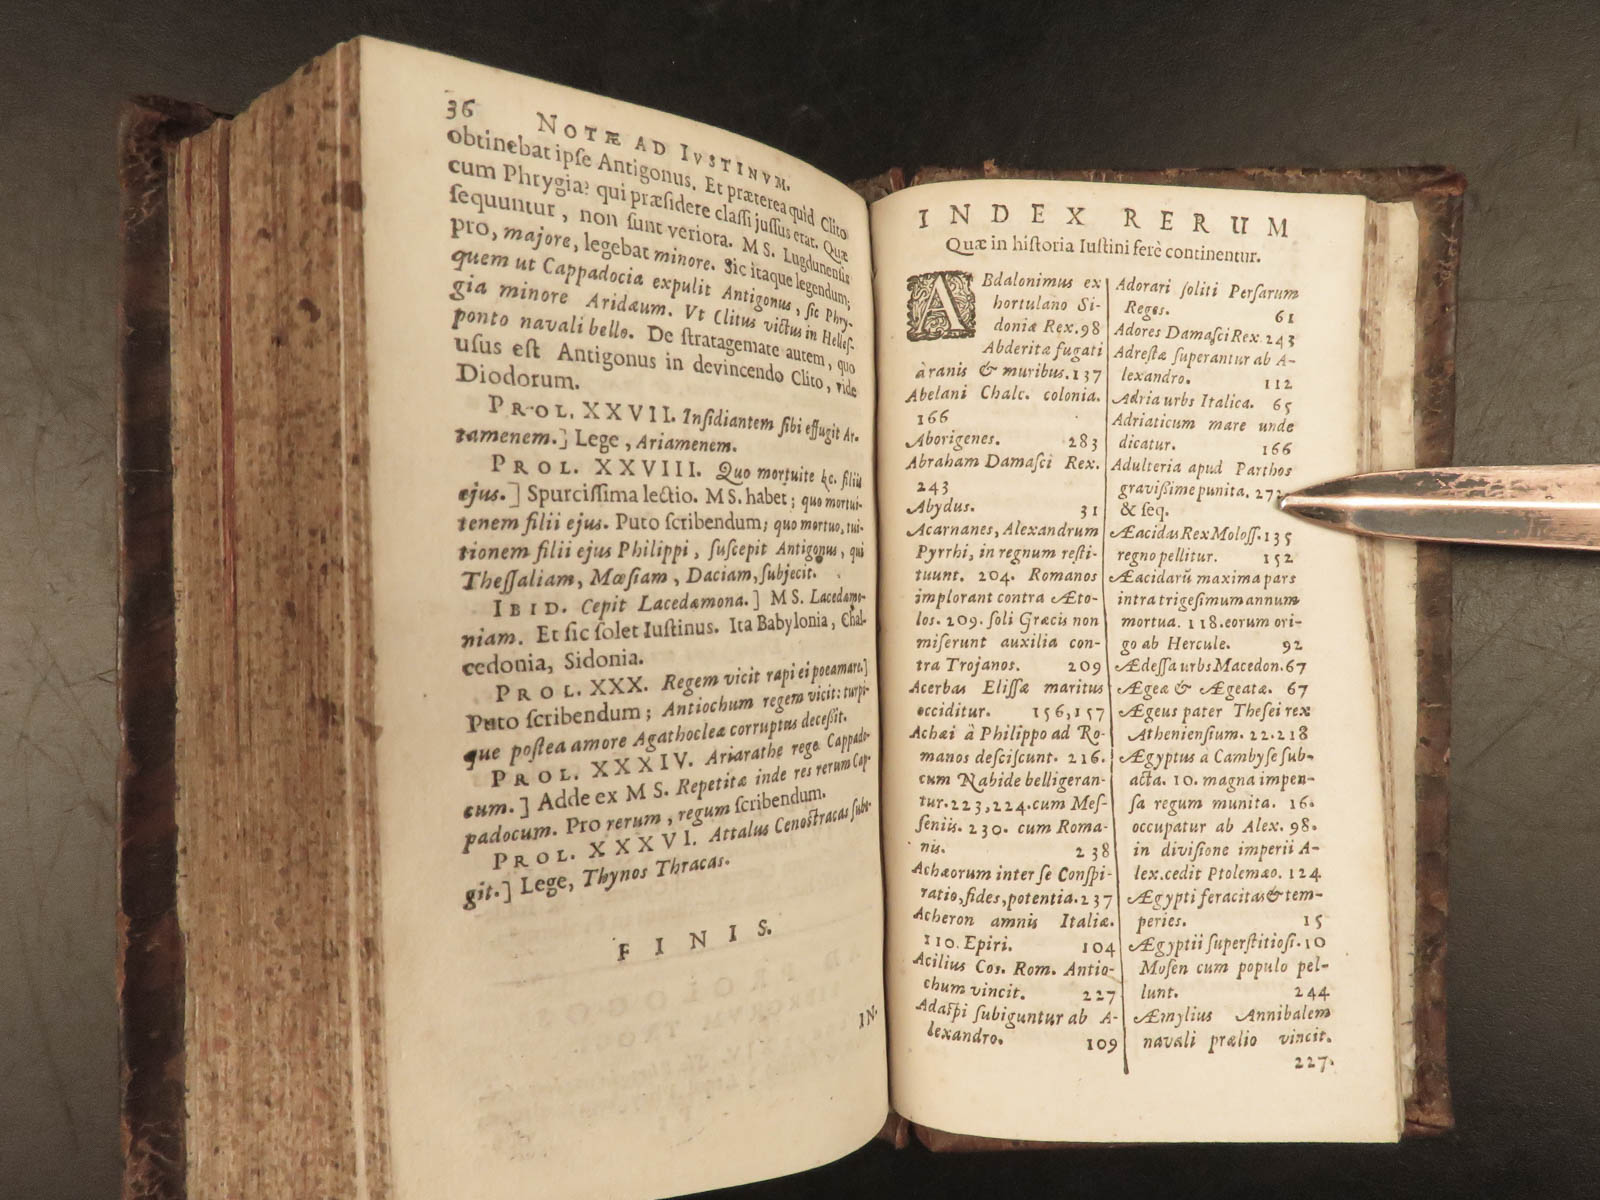 36 NOTÆ AD IVSTINVM.
obtinebat ipſe Antigonus. Et præterea quid Clito
cum Phrygia? qui præſidere claſſi juſſus erat. Quæ
ſequuntur, non ſunt veriora. MS. Lugdunenſis
pro, majore, legebat minore. Sic itaque legendum;
quem ut Cappadocia expulit Antigonus, ſic Phry-
gia minore Aridæum. Vt Clitus victus in Helleſ-
ponto navali bello. De ſtratagemate autem, quo
uſus eſt Antigonus in devincendo Clito, vide
Diodorum.
PROL. XXVII. Inſidiantem ſibi effugit Ar-
tamenem.] Lege, Ariamenem.
PROL. XXVIII. Quo mortuite &c. filii
ejus.] Spurciſſima lectio. MS. habet; quo mortui-
tenem filii ejus. Puto ſcribendum; quo mortuo, tui-
tionem filii ejus Philippi, ſuſcepit Antigonus, qui
Theſſaliam, Mœſiam, Daciam, ſubjecit.
IBID. Cepit Lacedæmona.] MS. Lacedæmo-
niam. Et ſic ſolet Iuſtinus. Ita Babylonia, Chal-
cedonia, Sidonia.
PROL. XXX. Regem vicit rapi ei poeamare.]
Puto ſcribendum; Antiochum regem vicit: turpi-
que poſtea amore Agathocleæ corruptus deceſſit.
PROL. XXXIV. Ariarathe rege Cappado-
cum.] Adde ex MS. Repetitæ inde res rerum Cap-
padocum. Pro rerum, regum ſcribendum.
PROL. XXXVI. Attalus Cenoſtracas ſube-
git.] Lege, Thynos Thracas.
FINIS.
IN-
INDEX RERUM
Quæ in hiſtoria Iuſtini ferè continentur.
ABdalonimus ex
hortulano Si-
doniæ Rex. 98
Abderitæ fugati
à ranis & muribus. 137
Abelani Chalc. colonia.
166
Aborigenes. 283
Abraham Damaſci Rex.
243
Abydus. 31
Acarnanes, Alexandrum
Pyrrhi, in regnum reſti-
tuunt. 204. Romanos
implorant contra Æto-
los. 209. ſoli Græcis non
miſerunt auxilia con-
tra Trojanos. 209
Acerbas Eliſſæ maritus
occiditur. 156, 157
Achæi à Philippo ad Ro-
manos deſciſcunt. 216.
cum Nabide belligeran-
tur. 223, 224. cum Meſ-
ſeniis. 230. cum Roma-
nis. 238
Achæorum inter ſe Conſpi-
ratio, fides, potentia. 237
Acheron amnis Italiæ.
110. Epiri. 104
Acilius Coſ. Rom. Antio-
chum vincit. 227
Adaſpi ſubiguntur ab A-
lexandro. 109
Adorari ſoliti Perſarum
Reges. 61
Adores Damaſci Rex. 243
Adreſtæ ſuperantur ab A-
lexandro. 112
Adria urbs Italica. 65
Adriaticum mare unde
dicatur. 166
Adulteria apud Parthos
graviſſime punita. 27
& ſeq.
Æacidas Rex Moloſſ. 135
regno pellitur. 152
Æacidarũ maxima pars
intra trigeſimum annum
mortua. 118. eorum ori-
go ab Hercule. 92
Ædeſſa urbs Macedon. 67
Ægeæ & Ægeatæ. 67
Ægeus pater Theſei rex
Athenienſium. 22. 218
Ægyptus à Cambyſe ſub-
acta. 10. magna impen-
ſa regum munita. 16.
occupatur ab Alex. 98.
in diviſione imperii A-
lex. cedit Ptolemæo. 124
Ægypti feracitas & tem-
peries. 15
Ægyptii ſuperſtitioſi. 10
Moſen cum populo pel-
lunt. 244
Æmylius Annibalem
navali prælio vincit.
227.